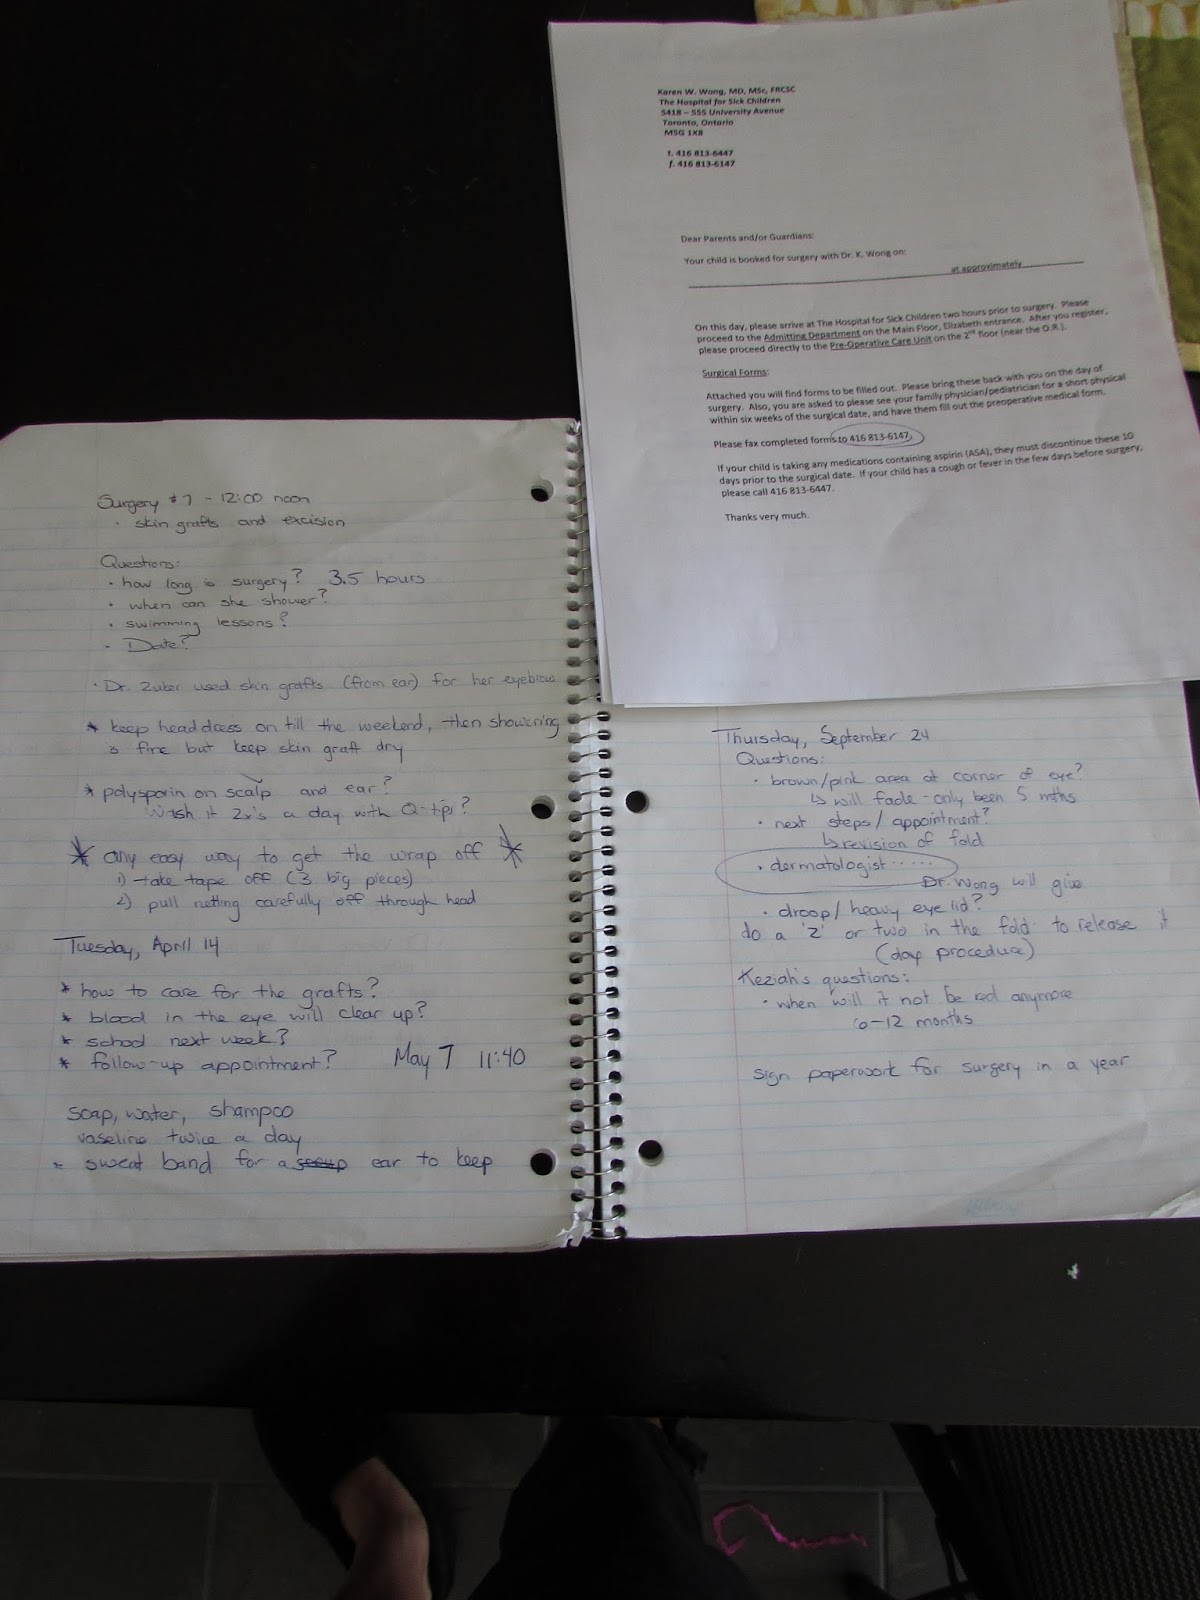 Karen W. Wong, MD, MSc, FRCSC
The Hospital for Sick Children
5418 – 555 University Avenue
Toronto, Ontario
M5G 1X8
t. 416 813-6447
f. 416 813-6147
Dear Parents and/or Guardians:
Your child is booked for surgery with Dr. K. Wong on:
at approximately
On this day, please arrive at The Hospital for Sick Children two hours prior to surgery. Please
proceed to the Admitting Department on the Main Floor, Elizabeth entrance. After you register,
please proceed directly to the Pre-Operative Care Unit on the 2nd floor (near the O.R.).
Surgical Forms:
Attached you will find forms to be filled out. Please bring these back with you on the day of
surgery. Also, you are asked to please see your family physician/pediatrician for a short physical
within six weeks of the surgical date, and have them fill out the preoperative medical form.
Please fax completed forms to 416 813-6147.
If your child is taking any medications containing aspirin (ASA), they must discontinue these 10
days prior to the surgical date. If your child has a cough or fever in the few days before surgery,
please call 416 813-6447.
Thanks very much.
Surgery #7 - 12:00 noon
· skin grafts and excision
Questions:
· how long is surgery? 3.5 hours
· when can she shower?
· swimming lessons?
· Date?
· Dr. Zuker used skin grafts (from ear) for her eyebrow
* keep headdress on till the weekend, then showering
is fine but keep skin graft dry
* polysporin on scalp and ear?
wash it 2x's a day with Q-tips?
* any easy way to get the wrap off *
1) take tape off (3 big pieces)
2) pull netting carefully off through head
Tuesday, April 14
* how to care for the grafts?
* blood in the eye will clear up?
* school next week?
* follow-up appointment? May 7 11:40
soap, water, shampoo
vaseline twice a day
* sweat band for a ear to keep
Thursday, September 24
Questions:
· brown/pink area at corner of eye?
↳ will fade - only been 5 mths
· next steps / appointment?
↳ revision of fold
· dermatologist ......
Dr. Wong will give
· droop / heavy eye lid?
do a 'Z' or two in the fold to release it
(day procedure)
Keziah's questions:
· when will it not be red anymore
6-12 months
sign paperwork for surgery in a year